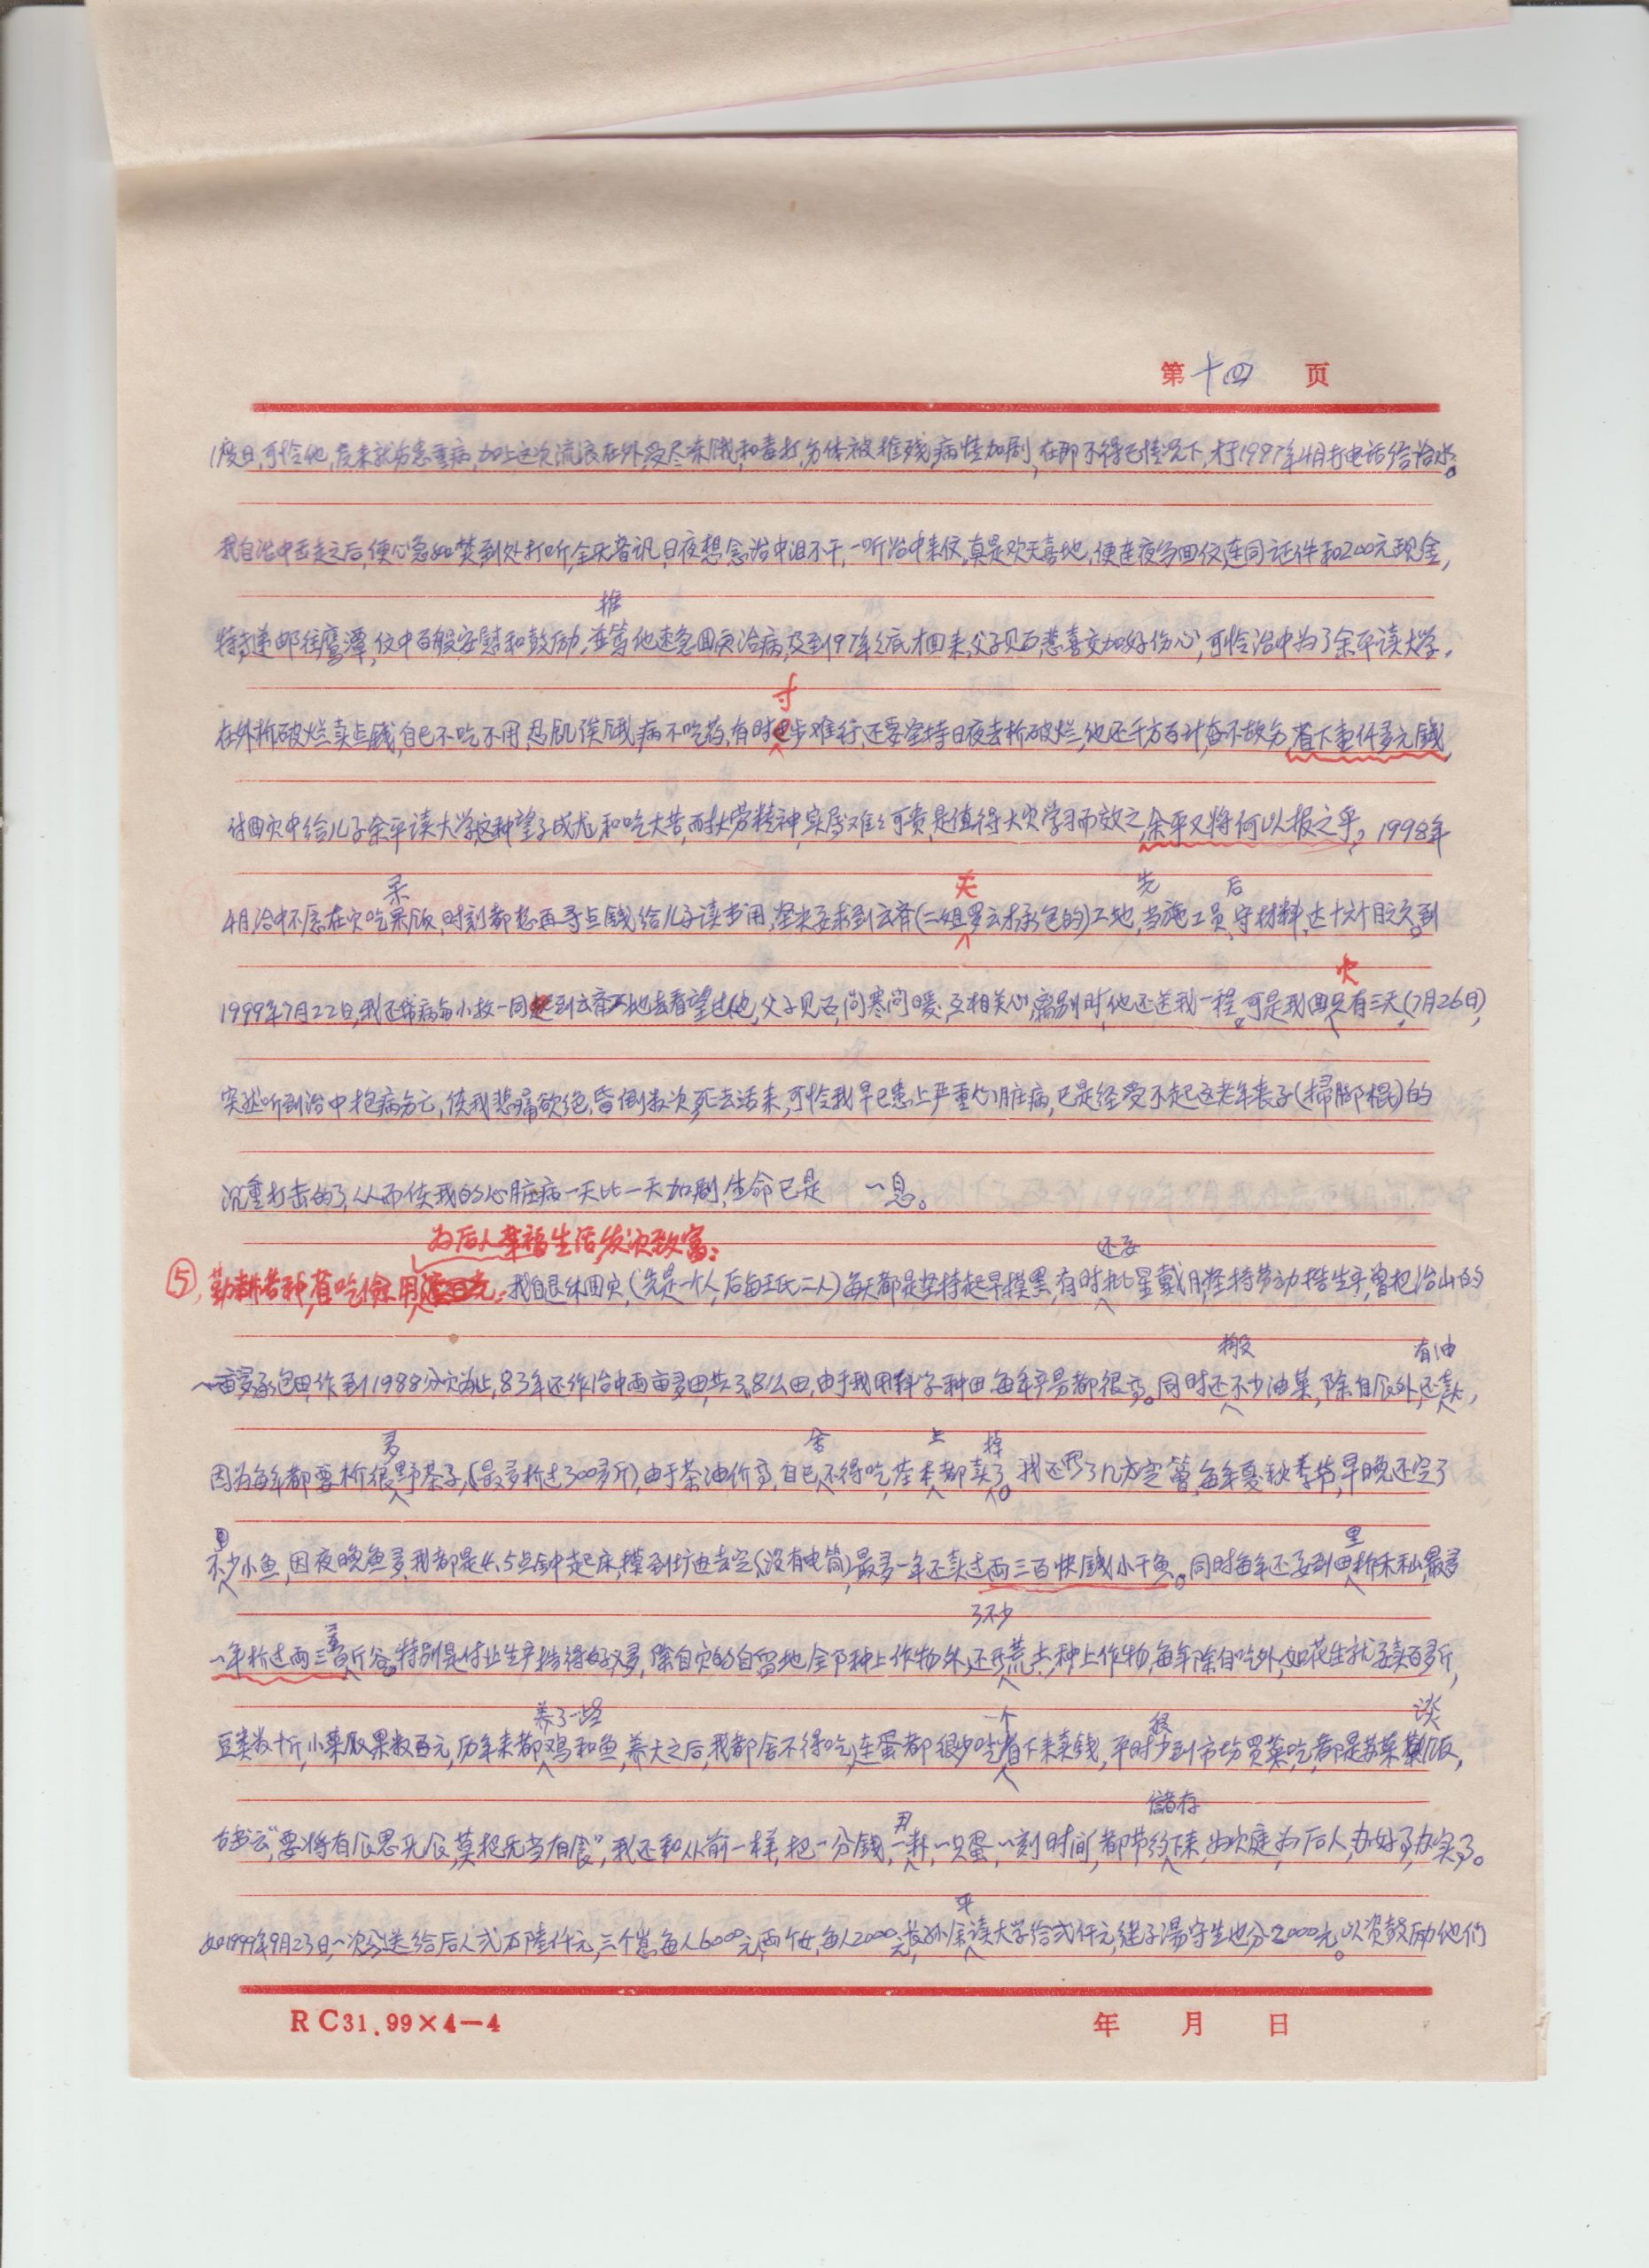 第十四页
度日,可怜他,度来就身患重病,加上这次流浪在外,受尽冻饿和毒打,身体被摧残,病情加剧,在那不得已情况下,才于1997年4月打电话给治水。
我自治中出走之后,便心急如焚到处打听,全无音讯,日夜想念治中泪不干,一听治中来信,真是欢天喜地,便连夜写回信,连同证件和200元现金,
特递邮往鹰潭,信中百般安慰和鼓励,并等他速急回家治病,及到97年年底才回来,父子见面悲喜交加好伤心,可怜治中为了余平读大学,
在外拆破烂卖点钱,自己不吃不用,忍饥挨饿,病不吃药,有时寸步难行,还要坚持日夜去拆破烂,他还千方百计,省下壹仟多元钱,
付回家中给儿子余平读大学,这种望子成龙,和吃大苦,而耐大劳精神,实属难能可贵,是值得大家学习而效之,余平又将何以报之乎?1998年
4月治中不愿在家吃呆饭,时刻都想再寻点钱给儿子读书用,坚决要求到云斋(二姐夫罗云才承包的)工地,当施工员,先后守材料,达十六个月之久。到
1999年7月22日,我还带病与小敖一同到云斋工地去看望过他,父子见面,问寒问暖,互相关心,离别时,他还送我一程。可是我回家只有三天(7月26日),
突然听到治中抱病身亡,使我悲痛欲绝,昏倒数次,死去活来,可怜我早已患上严重心脏病,已是经受不起这老年丧子(扫脚棍)的
沉重打击的了,从而使我的心脏病一天比一天加剧,生命已是 一息。
为后人幸福生活,发家致富:
⑤,勤耕苦种,省吃俭用,我自退休回家,(先是一个人,后与王氏二人)每天都是坚持起早摸黑,有时还要批星戴月,坚持劳动搞生产,曾把治山的
一亩多承包田作到1988分家为止,83年还作治中两亩多田,共3.8公田,由于我用科学种田,每年产量都很高。同时还搬不少油菜,除自食外,还有油卖,
因为每年都要拆很多野茶子,(最多拆过300多斤),由于茶油价高,自己舍不得吃,基本上都卖掉了。我还买了几方定簧,每年夏秋季节,早晚还定了
不少小鱼,因夜晚鱼多,我都是4、5点钟起床,摸到圹边去定(没有电筒),最多一年还卖过两三百块钱小干鱼。同时每年还要到田里拆禾秋,最多
一年拆过两三百斤谷,特别是付业生产搞得好又多,除自家的自留地,全部种上作物外,还开了不少荒土,种上作物,每年除自吃外,如花生就要卖百多斤,
豆类数十斤,小菜瓜果数百元,历年来都养了一些鸡和鱼,养大之后,我都舍不得吃,连蛋都很少吃一个,省下来卖钱,平时很少到市场买菜吃,都是苏菜淡饭,
古书云“要将有食思无食,莫把无当有食”,我还和从前一样,把一分钱,一耕,一只蛋,一刻时间,都节约储存下来,为家庭为后人,办好了,办实了。
如1999年9月23日,一次分送给后人弍万陆仟元,三个崽,每人6000元,两个女,每人2000元,长孙余平读大学给弍仟元,继子汤守生也分2000元。以资鼓励他们
RC31.99×4—4
年 月 日